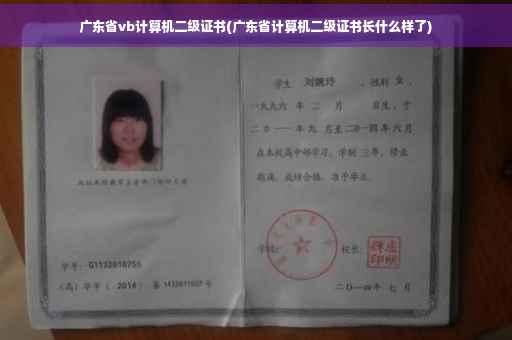 广东省vb计算机二级证书(广东省计算机二级证书长什么样了)
学生 刘婉玲 ，性别 女 ，
一九九六 年 二 月 日生，于
二〇一一 年 九 月至 二〇一四 年 六 月
在本校高中部学习，学制 三 年，修业
期满，成绩合格，准予毕业。
学校: 校长:
学号: G1132010755
(高) 毕字 ( 2014 ) 第 1432011007 号
二〇一四 年 七 月